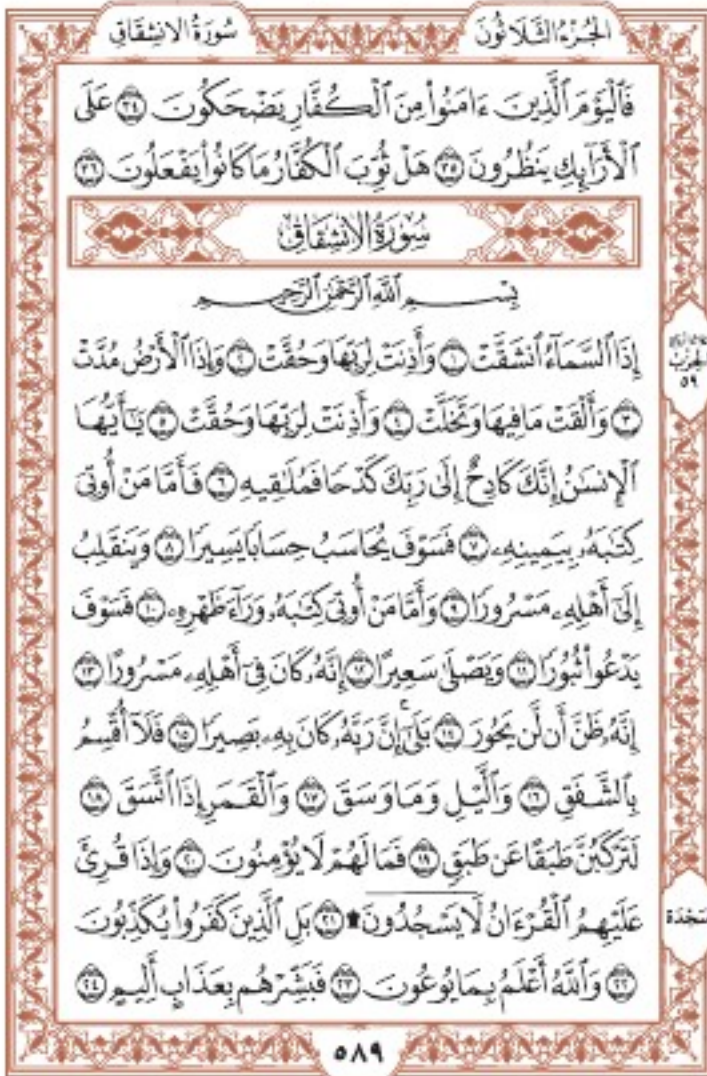 الجُزْءُ الثَّلَاثُونَ
سُورَةُ الانشِقَاقِ
فَٱلْيَوْمَ ٱلَّذِينَ ءَامَنُوا۟ مِنَ ٱلْكُفَّارِ يَضْحَكُونَ ٣٤ عَلَى
ٱلْأَرَآئِكِ يَنظُرُونَ ٣٥ هَلْ ثُوِّبَ ٱلْكُفَّارُ مَا كَانُوا۟ يَفْعَلُونَ ٣٦
سُورَةُ الانشِقَاقِ
بِسْمِ ٱللَّهِ ٱلرَّحْمَٰنِ ٱلرَّحِيمِ
إِذَا ٱلسَّمَآءُ ٱنشَقَّتْ ١ وَأَذِنَتْ لِرَبِّهَا وَحُقَّتْ ٢ وَإِذَا ٱلْأَرْضُ مُدَّتْ
٣ وَأَلْقَتْ مَا فِيهَا وَتَخَلَّتْ ٤ وَأَذِنَتْ لِرَبِّهَا وَحُقَّتْ ٥ يَٰٓأَيُّهَا
ٱلْإِنسَٰنُ إِنَّكَ كَادِحٌ إِلَىٰ رَبِّكَ كَدْحًا فَمُلَٰقِيهِ ٦ فَأَمَّا مَنْ أُوتِىَ
كِتَٰبَهُۥ بِيَمِينِهِۦ ٧ فَسَوْفَ يُحَاسَبُ حِسَابًا يَسِيرًا ٨ وَيَنقَلِبُ
إِلَىٰٓ أَهْلِهِۦ مَسْرُورًا ٩ وَأَمَّا مَنْ أُوتِىَ كِتَٰبَهُۥ وَرَآءَ ظَهْرِهِۦ ١٠ فَسَوْفَ
يَدْعُوا۟ ثُبُورًا ١١ وَيَصْلَىٰ سَعِيرًا ١٢ إِنَّهُۥ كَانَ فِىٓ أَهْلِهِۦ مَسْرُورًا ١٣
إِنَّهُۥ ظَنَّ أَن لَّن يَحُورَ ١٤ بَلَىٰٓ إِنَّ رَبَّهُۥ كَانَ بِهِۦ بَصِيرًا ١٥ فَلَآ أُقْسِمُ
بِٱلشَّفَقِ ١٦ وَٱلَّيْلِ وَمَا وَسَقَ ١٧ وَٱلْقَمَرِ إِذَا ٱتَّسَقَ ١٨
لَتَرْكَبُنَّ طَبَقًا عَن طَبَقٍ ١٩ فَمَا لَهُمْ لَا يُؤْمِنُونَ ٢٠ وَإِذَا قُرِئَ
عَلَيْهِمُ ٱلْقُرْءَانُ لَا يَسْجُدُونَ ۩ ٢١ بَلِ ٱلَّذِينَ كَفَرُوا۟ يُكَذِّبُونَ
٢٢ وَٱللَّهُ أَعْلَمُ بِمَا يُوعُونَ ٢٣ فَبَشِّرْهُم بِعَذَابٍ أَلِيمٍ ٢٤
الحِزْبُ
٥٩
سَجْدَة
٥٨٩